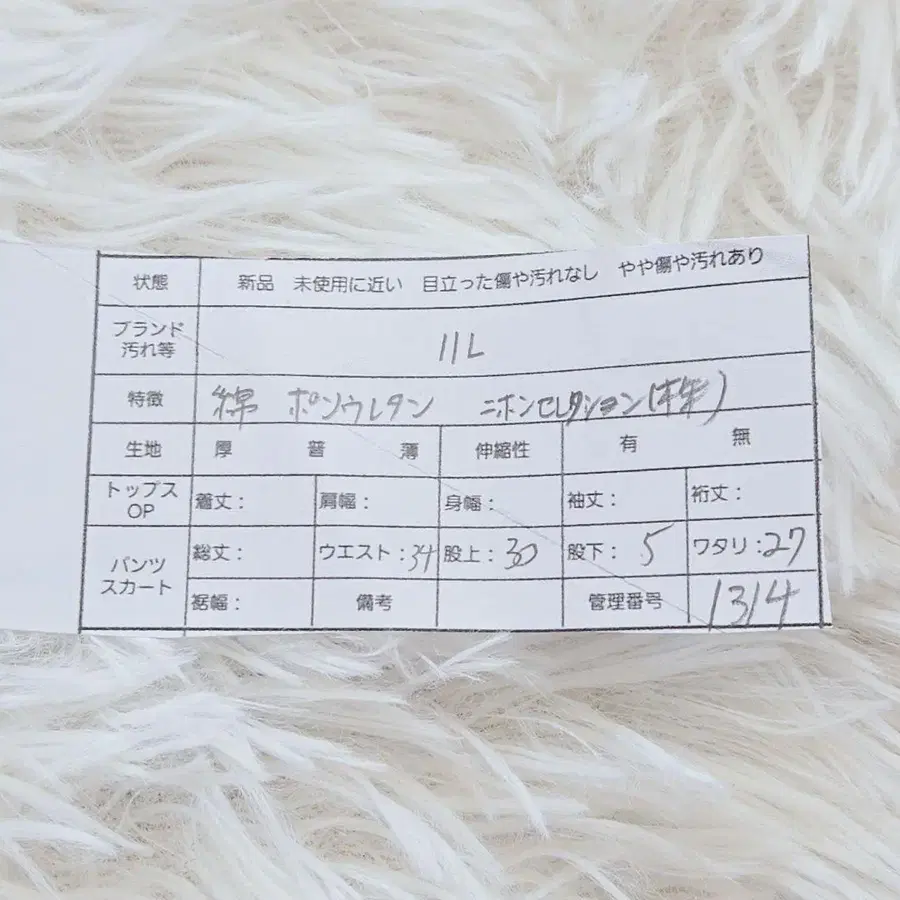 状態 新品 未使用に近い 目立った傷や汚れなし やや傷や汚れあり
ブランド
汚れ等 11L
特徴 綿 ポンウレタン ニホンセレクション(株)
生地 厚 普 薄 伸縮性 有 無
トップス
OP 着丈: 肩幅: 身幅: 袖丈: 裄丈:
パンツ
スカート 総丈: ウエスト:34 股上:30 股下:5 ワタリ:27
裾幅: 備考 管理番号 1314